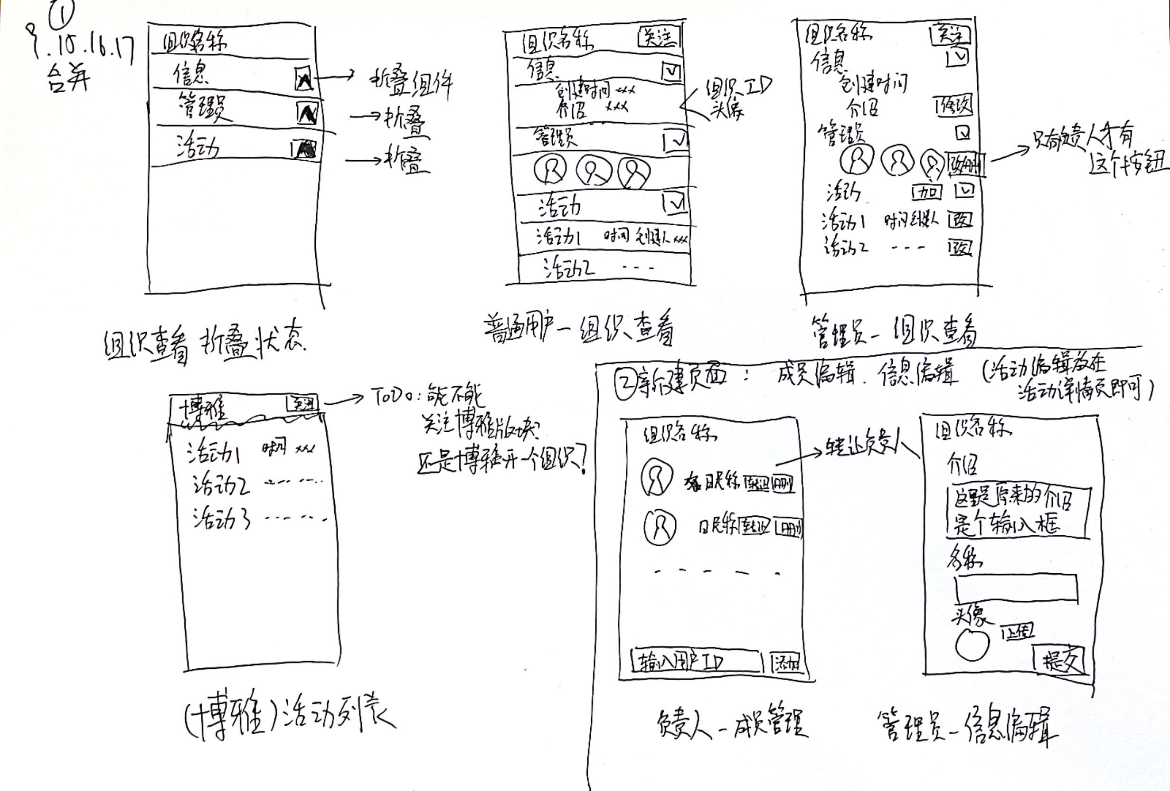 ①
9.10.16.17
合并
组织名称
信息
管理员
活动
折叠组件
折叠
折叠
组织查看 折叠状态
组织名称 关注
信息
创建时间 xxx
介绍 xxx
组织ID
头像
管理员
活动
活动1 时间 创建人 xxx
活动2 - - -
普通用户-组织查看
组织名称 关注
信息
创建时间
介绍 修改
管理员
只有负责人才有
这个按钮
活动 加
活动1 时间 创建人 改
活动2 - - - 改
管理员-组织查看
博雅 关注
ToDo:能不能
关注博雅版块?
还是博雅开一个组织?
活动1 时间 xxx
活动2
活动3
(博雅)活动列表
②新建页面: 成员编辑、信息编辑 (活动编辑放在
活动详情页即可)
组织名称
昵称 转让 删
转让负责人
昵称 转让 删
输入用户ID 添加
负责人-成员管理
组织名称
介绍
这里是原来的介绍
是个输入框
名称
头像
上传
提交
管理员-信息编辑